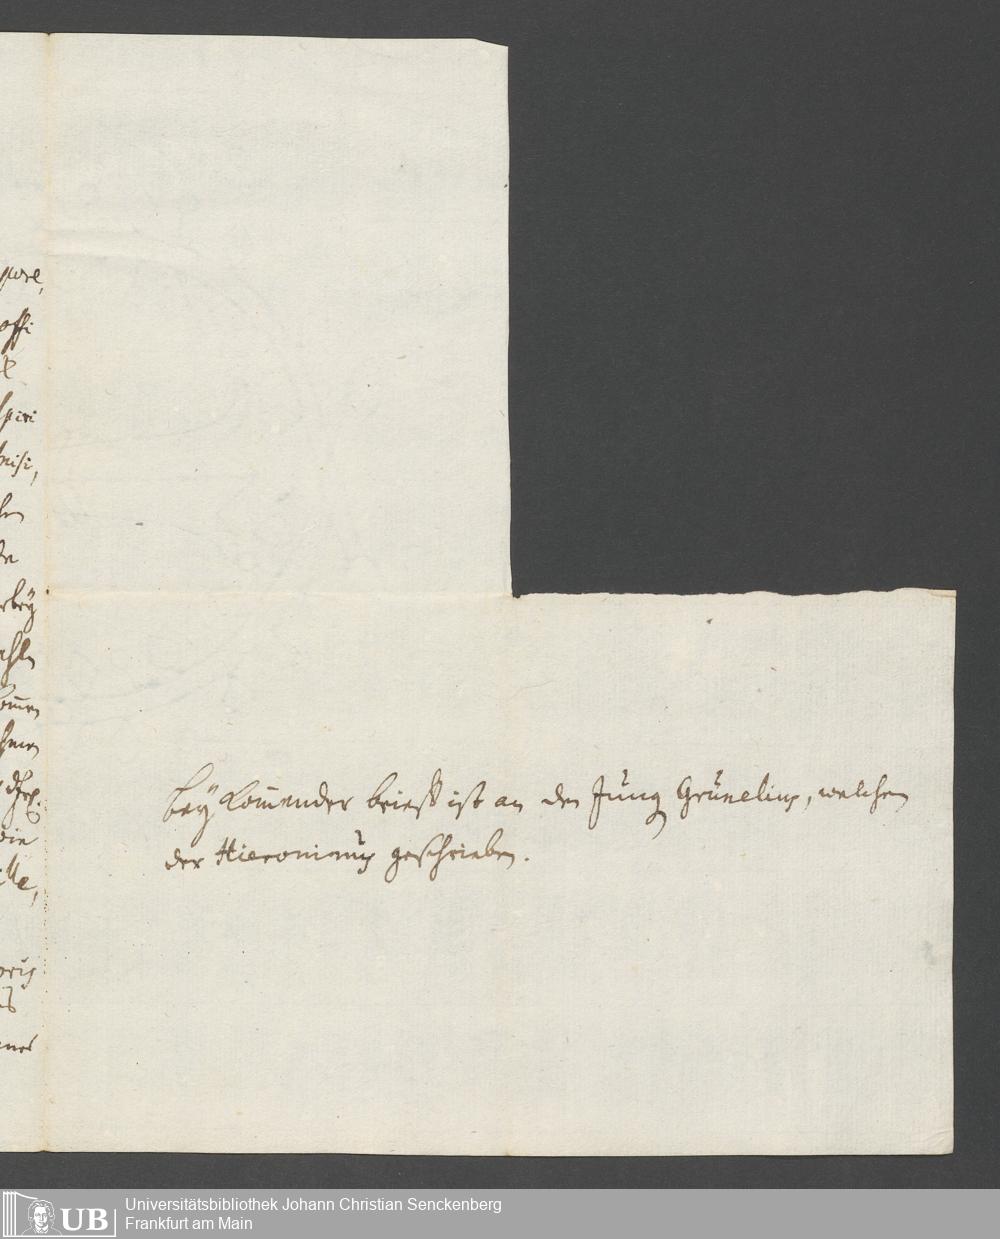 beÿ Kom̄ender brieff ist an den Jung Grünelius, welchen
der Hieronimus geschrieben.
offi
spiri
wie
Universitätsbibliothek Johann Christian Senckenberg
Frankfurt am Main
UB